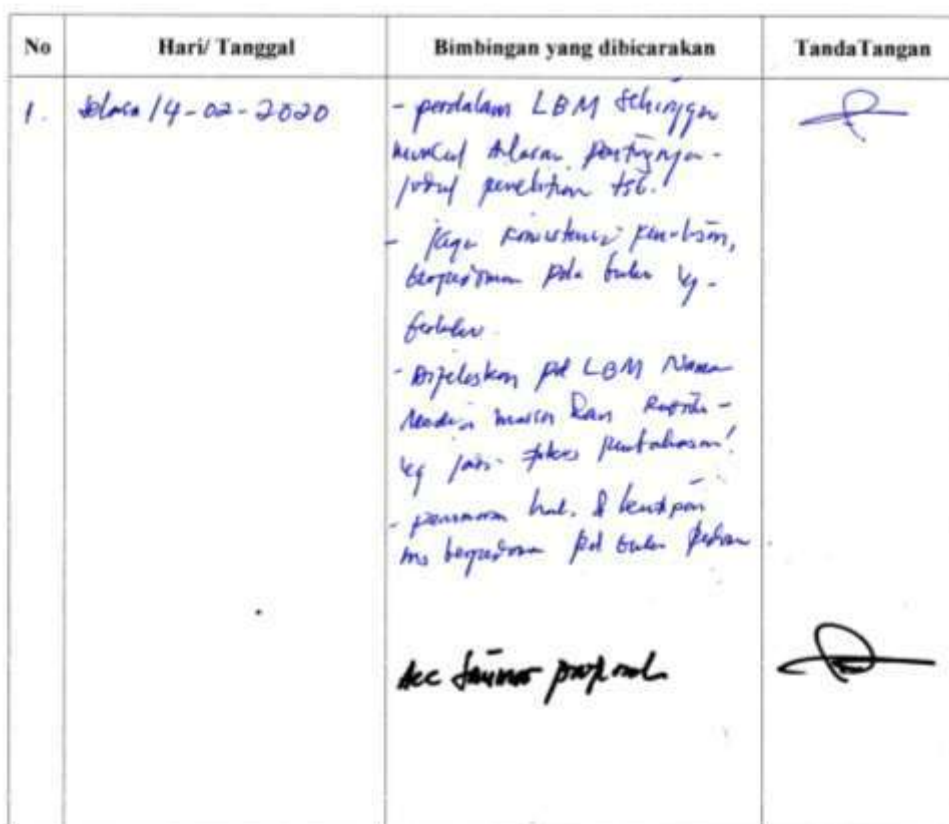 No Hari/ Tanggal Bimbingan yang dibicarakan TandaTangan
1. Selasa /4-02-2020 - perdalam LBM Sehingga
muncul Alasan pentingnya -
judul penelitian tsb.
- jaga konsistensi penulisan,
berpedoman pda buku yg -
berlaku.
- Dijelaskan pd LBM Nama
yg jadi fokus pembahasan!
- hal. & kutipan
berpedoman pd buku
Acc Seminar proposal